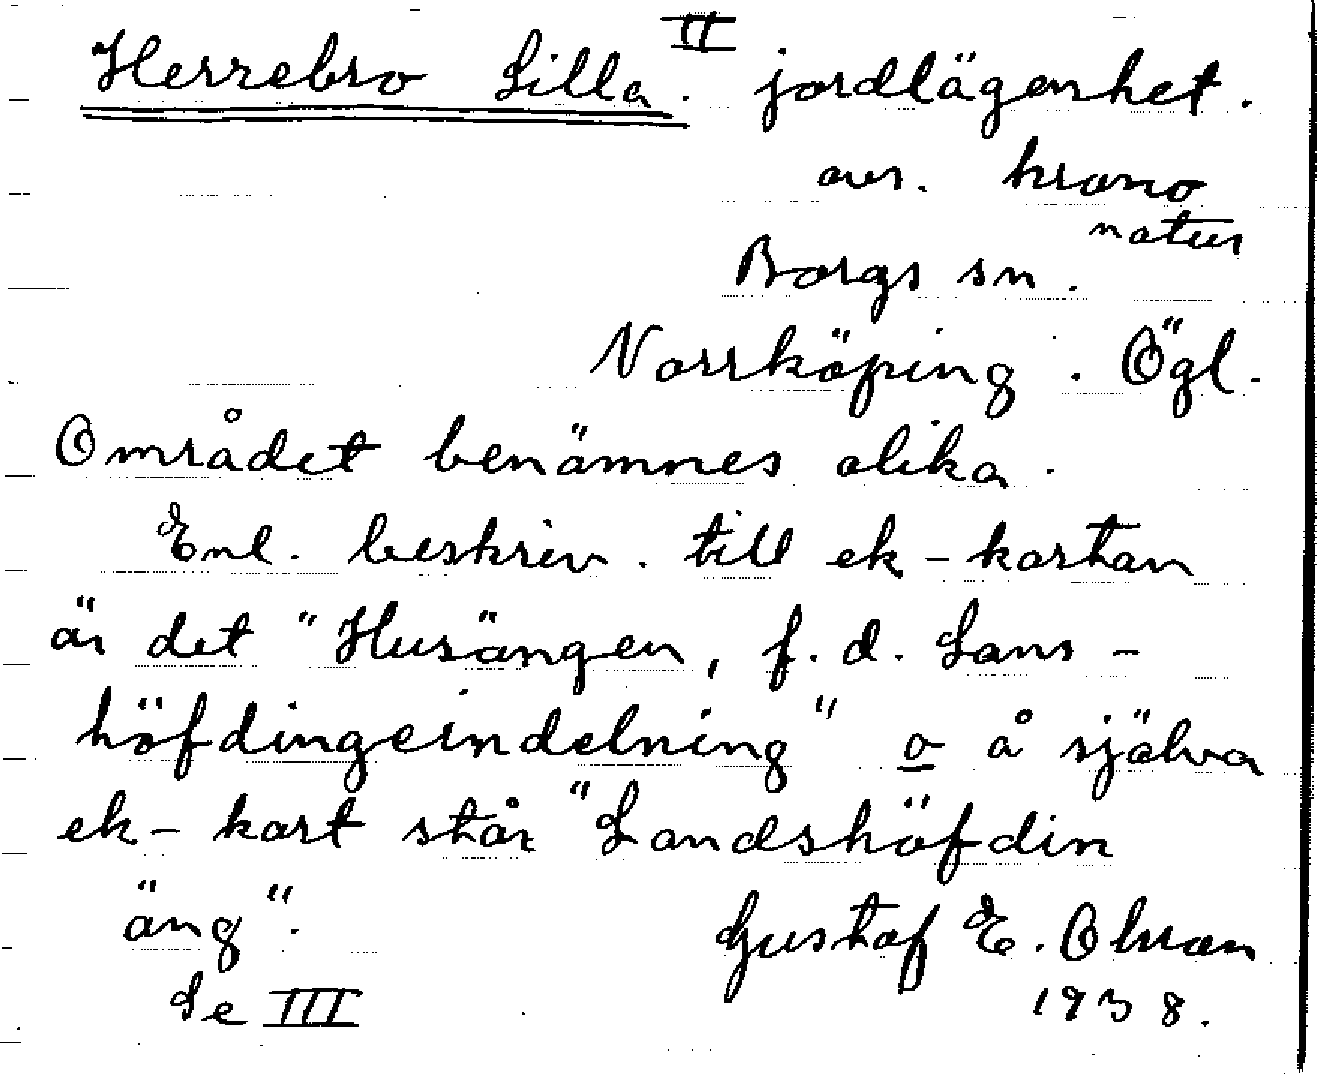 Herrebro Lilla II. jordlägenhet.
av. krono
natur
Borgs sn.
Norrköping. Ögl.
Området benämnes olika.
Enl. beskriv. till ek-kartan
är det "Husängen, f.d. Lans-
höfdingeindelning" o å själva
ek-kart står "Landshöfdin
äng".
Gustaf E. Ohman
Se III
1938.